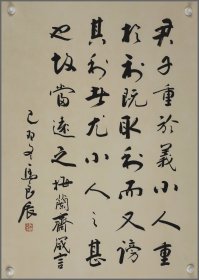 君子重於義小人重
於利既取利而又謗
其利者尤小人之甚
也故當遠之悔蘭齋箴言
己卯冬馬良辰